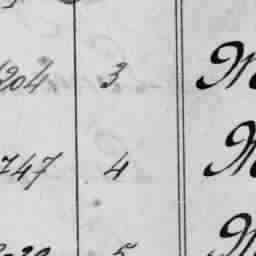 204 3 M
747 4 M
5 M